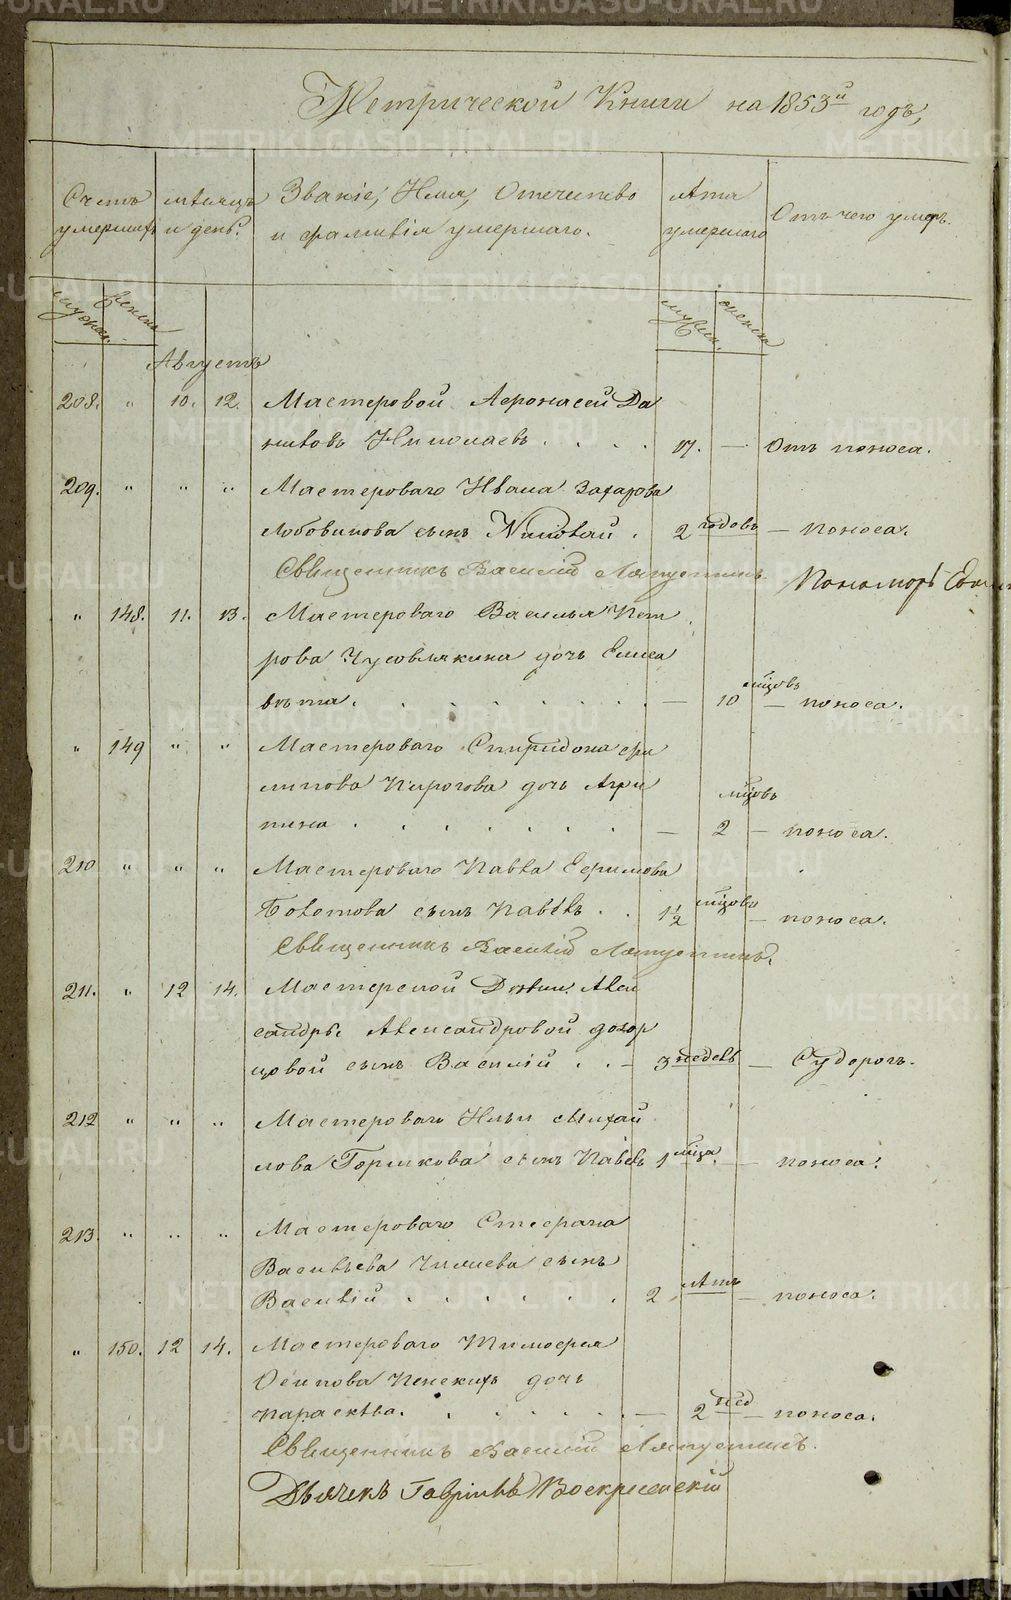 Метрической Книги на 1853й годъ,
Счетъ умершихъ
мѣсяцъ и день.
Званіе, Имя, Отечество и фамилія умершаго.
Лѣта умершаго
Отъ чего умеръ.
мужеска женска
мужеска женска
Августъ
208. " 10. 12. Мастеровой Афонасей Да
ниловъ Николаевъ . . . . 17. — Отъ поноса.
209. " " " Мастероваго Ивана Захарова
Лобовикова сынъ Николай . 2 годовъ — поноса.
Священникъ Василій Лапустинъ Пономарь
" 148. 11. 13. Мастероваго Василья Пет
рова Чусовлякина дочь Елиса
вѣта. . . . . . . . — 10 мцовъ — поноса.
" 149 " " Мастероваго Спиридона Фи
липова Пирогова дочь Агри
пина . . . . . . . — 2 мцовъ — поноса.
210 " " " Мастероваго Павла Ефимова
Болотова сынъ Павелъ . . 1½ мцовъ — поноса.
Священникъ Василій Лапустинъ.
211. " 12 14. Мастерской Алек
сандры Александровой
цовой сынъ Василій . . — 3 недель — Судорогъ.
212 " " " Мастероваго Ильи Михай
лова Горшкова сынъ Павелъ 1 мца. — поноса.
213. " " " Мастероваго Стефана
Васильева сынъ
Василій . . . . . . 2 лѣтъ — поноса.
" 150. 12 14. Мастероваго Тимофея
Осипова дочь
Параскева. . . . . . . — 2 нед — поноса.
Священникъ Василій Лапустинъ.
Дьячекъ Гаврилъ Воскресенскій
METRIKI.GASO-URAL.RU